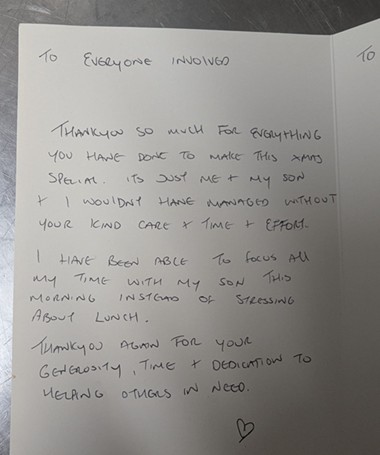 TO EVERYONE INVOLVED
TO
THANKYOU SO MUCH FOR EVERYTHING
YOU HAVE DONE TO MAKE THIS XMAS
SPECIAL. ITS JUST ME + MY SON
+ I WOULDNT HAVE MANAGED WITHOUT
YOUR KIND CARE + TIME + EFFORT.
I HAVE BEEN ABLE TO FOCUS ALL
MY TIME WITH MY SON THIS
MORNING INSTEAD OF STRESSING
ABOUT LUNCH.
THANKYOU AGAIN FOR YOUR
GENEROSITY, TIME + DEDICATION TO
HELPING OTHERS IN NEED.